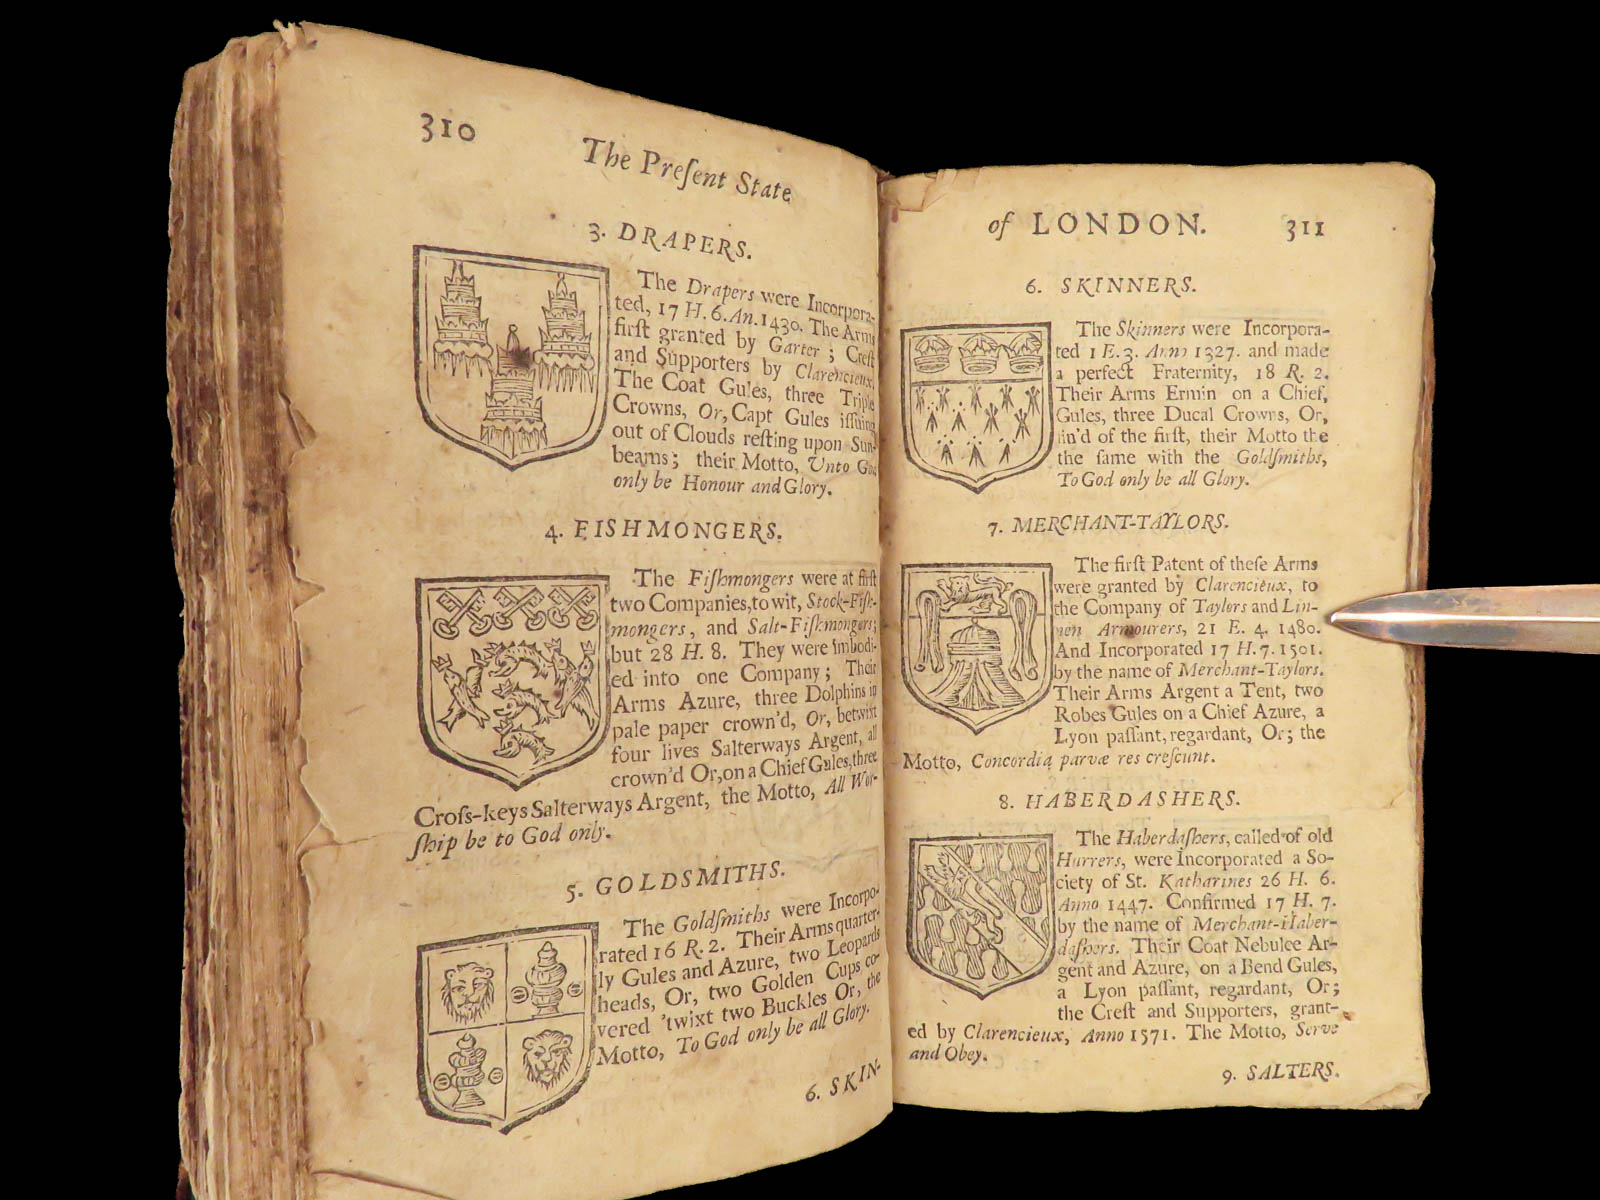 310
The Preſent State
3. DRAPERS.
The Drapers were Incorpora-
ted, 17 H. 6. An. 1430. The Arms
firſt granted by Garter; Creſt
and Supporters by Clarencieux,
The Coat Gules, three Triple
Crowns, Or, Capt Gules iſſuing
out of Clouds reſting upon Sun-
beams; their Motto, Unto God
only be Honour and Glory.
4. FISHMONGERS.
The Fiſhmongers were at firſt
two Companies, to wit, Stock-Fiſh-
mongers, and Salt-Fiſhmongers;
but 28 H. 8. They were imbodi-
ed into one Company; Their
Arms Azure, three Dolphins in
pale paper crown'd, Or, betwixt
four lives Salterways Argent, all
crown'd Or, on a Chief Gules, three
Croſs-keys Salterways Argent, the Motto, All Wor-
ſhip be to God only.
5. GOLDSMITHS.
The Goldſmiths were Incorpo-
rated 16 R. 2. Their Arms quarter-
ly Gules and Azure, two Leopards
heads, Or, two Golden Cups co-
vered 'twixt two Buckles Or, the
Motto, To God only be all Glory.
6. SKIN-
of LONDON. 311
6. SKINNERS.
The Skinners were Incorpora-
ted 1 E. 3. Anno 1327. and made
a perfect Fraternity, 18 R. 2.
Their Arms Ermin on a Chief,
Gules, three Ducal Crowns, Or,
lin'd of the firſt, their Motto the
the ſame with the Goldſmiths,
To God only be all Glory.
7. MERCHANT-TAYLORS.
The firſt Patent of theſe Arms
were granted by Clarencieux, to
the Company of Taylors and Lin-
nen Armourers, 21 E. 4. 1480.
And Incorporated 17 H. 7. 1501.
by the name of Merchant-Taylors.
Their Arms Argent a Tent, two
Robes Gules on a Chief Azure, a
Lyon paſſant, regardant, Or; the
Motto, Concordia parvæ res creſcunt.
8. HABERDASHERS.
The Haberdaſhers, called of old
Hurrers, were Incorporated a So-
ciety of St. Katharines 26 H. 6.
Anno 1447. Confirmed 17 H. 7.
by the name of Merchant-Haber-
daſhers. Their Coat Nebulee Ar-
gent and Azure, on a Bend Gules,
a Lyon paſſant, regardant, Or;
the Creſt and Supporters, grant-
ed by Clarencieux, Anno 1571. The Motto, Serve
and Obey.
9. SALTERS.